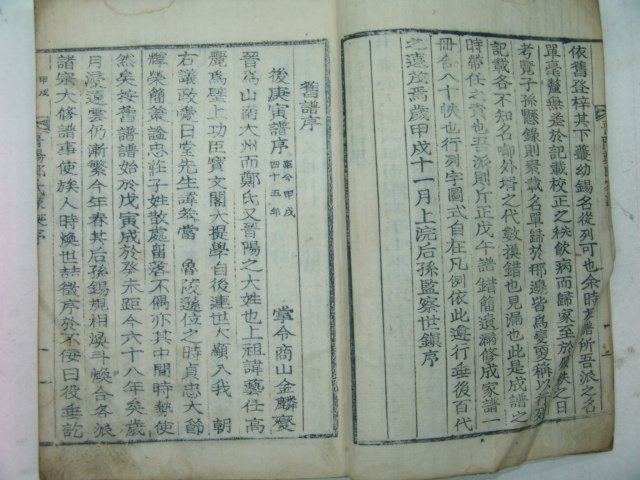 依舊登梓其下叢幼錫名從列可也余時在譜所吾派之名
單毫釐無差於記載校正之秩飲病而歸家至於頒秩之日
考覽子孫懸錄則累載名單歸於那邊皆爲變更稱以行列
記載各不知名啣外壻之代數換錯也見漏也此是成譜之
時帶任之責也吾派則斤正戊午譜錯簡遺漏修成家譜一
冊合八十帙也行列字圖式自在凡例依此遵行垂後百代
之遠茂焉歲甲戌十一月上浣后孫監察世鎭序
舊譜序
後庚寅譜序 甲戌 四十五年 掌令商山金麟燮
晉爲山南大州而鄭氏又晉陽之大姓也上祖諱藝任高
麗爲壁上功臣寶文閣大提學自後連世大顯入我 朝
右議政愚日堂先生諱苯當 魯陵遜位之時貞忠大節
輝榮簡策謐忠莊子姓散處留落不偶亦其中間時勢使
然矣按舊譜譜始於戊寅成於癸未距今六十八年矣歲
月浸遠雲仍漸繁今年春其后孫錫規相渙斗煥合各派
諸宗大修譜事使族人時煥世赫徵序於不佞曰後垂訖
甲戌
晉陽鄭氏 序